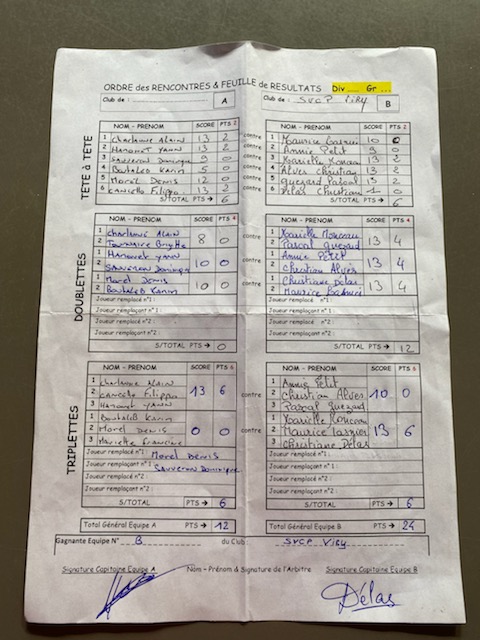 ORDRE des RENCONTRES & FEUILLE de RESULTATS Div ... Gr ...
Club de : A Club de : SVCP VIRY B
TÊTE à TÊTE
NOM - PRENOM SCORE PTS 2 NOM - PRENOM SCORE PTS 2
1 Charlanne ALAIN 13 2 contre 1 Maurice 10 0
2 Hanonet YANN 13 2 contre 2 Annie Petit 9 0
3 Sauveron Dominique 9 0 contre 3 13 2
4 Boutaleb Karim 5 0 contre 4 Alves Christian 13 2
5 Morel Denis 12 0 contre 5 Pascal 13 2
6 Filippo 13 2 contre 6 Délas Christiane 0
S/TOTAL PTS → 6 S/TOTAL PTS → 6
DOUBLETTES
NOM - PRENOM SCORE PTS 4 NOM - PRENOM SCORE PTS 4
1 Charlanne ALAIN 8 0 contre 1 13 4
2 2 Pascal
1 Hanonet YANN 10 0 contre 1 Annie Petit 13 4
2 Sauveron Dominique 2 Christian Alvès
1 Morel Denis 10 0 contre 1 Christiane Délas 13 4
2 Boutaleb Karim 2 Maurice
Joueur remplacé n°1 :
Joueur remplaçant n°1 :
Joueur remplacé n°2 :
Joueur remplaçant n°2 :
S/TOTAL PTS → 0 12
TRIPLETTES
NOM - PRENOM SCORE PTS 6 NOM - PRENOM SCORE PTS 6
1 Charlanne Alain 1 Annie Petit
2 Filippo 13 6 contre 2 Christian Alves 10 0
3 Hanonet YANN 3 Pascal
1 Boutaleb Karim 1
2 Morel Denis 0 0 contre 2 Maurice 13 6
3 Francine 3 Christiane Délas
Joueur remplacé n°1 : Morel Denis Joueur remplacé n°1 :
Joueur remplaçant n°1 : Sauveron Dominique Joueur remplaçant n°1 :
Joueur remplacé n°2 : Joueur remplacé n°2 :
Joueur remplaçant n°2 : Joueur remplaçant n°2 :
S/TOTAL PTS → 6 S/TOTAL PTS → 6
Total Général Equipe A PTS → 12 Total Général Equipe B PTS → 24
Gagnante Equipe N° B du Club : SVCP Viry
Signature Capitaine Equipe A Nom - Prénom & Signature de l'Arbitre Signature Capitaine Equipe B
Délas